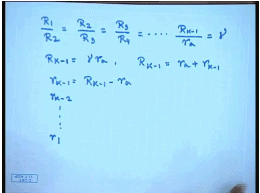 R₁/R₂ = R₂/R₃ = R₃/R₄ = .... R_{K-1}/r_a = γ
R_{K-1} = γ r_a , R_{K-1} = r_a + r_{K-1}
r_{K-1} = R_{K-1} - r_a
r_{K-2}
⋮
r₁